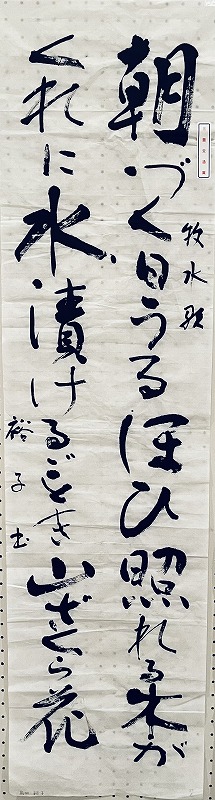 朝づく日うるほひ照れる木が
くれに水漬けるごとき山ざくら花
牧水歌
裕子書